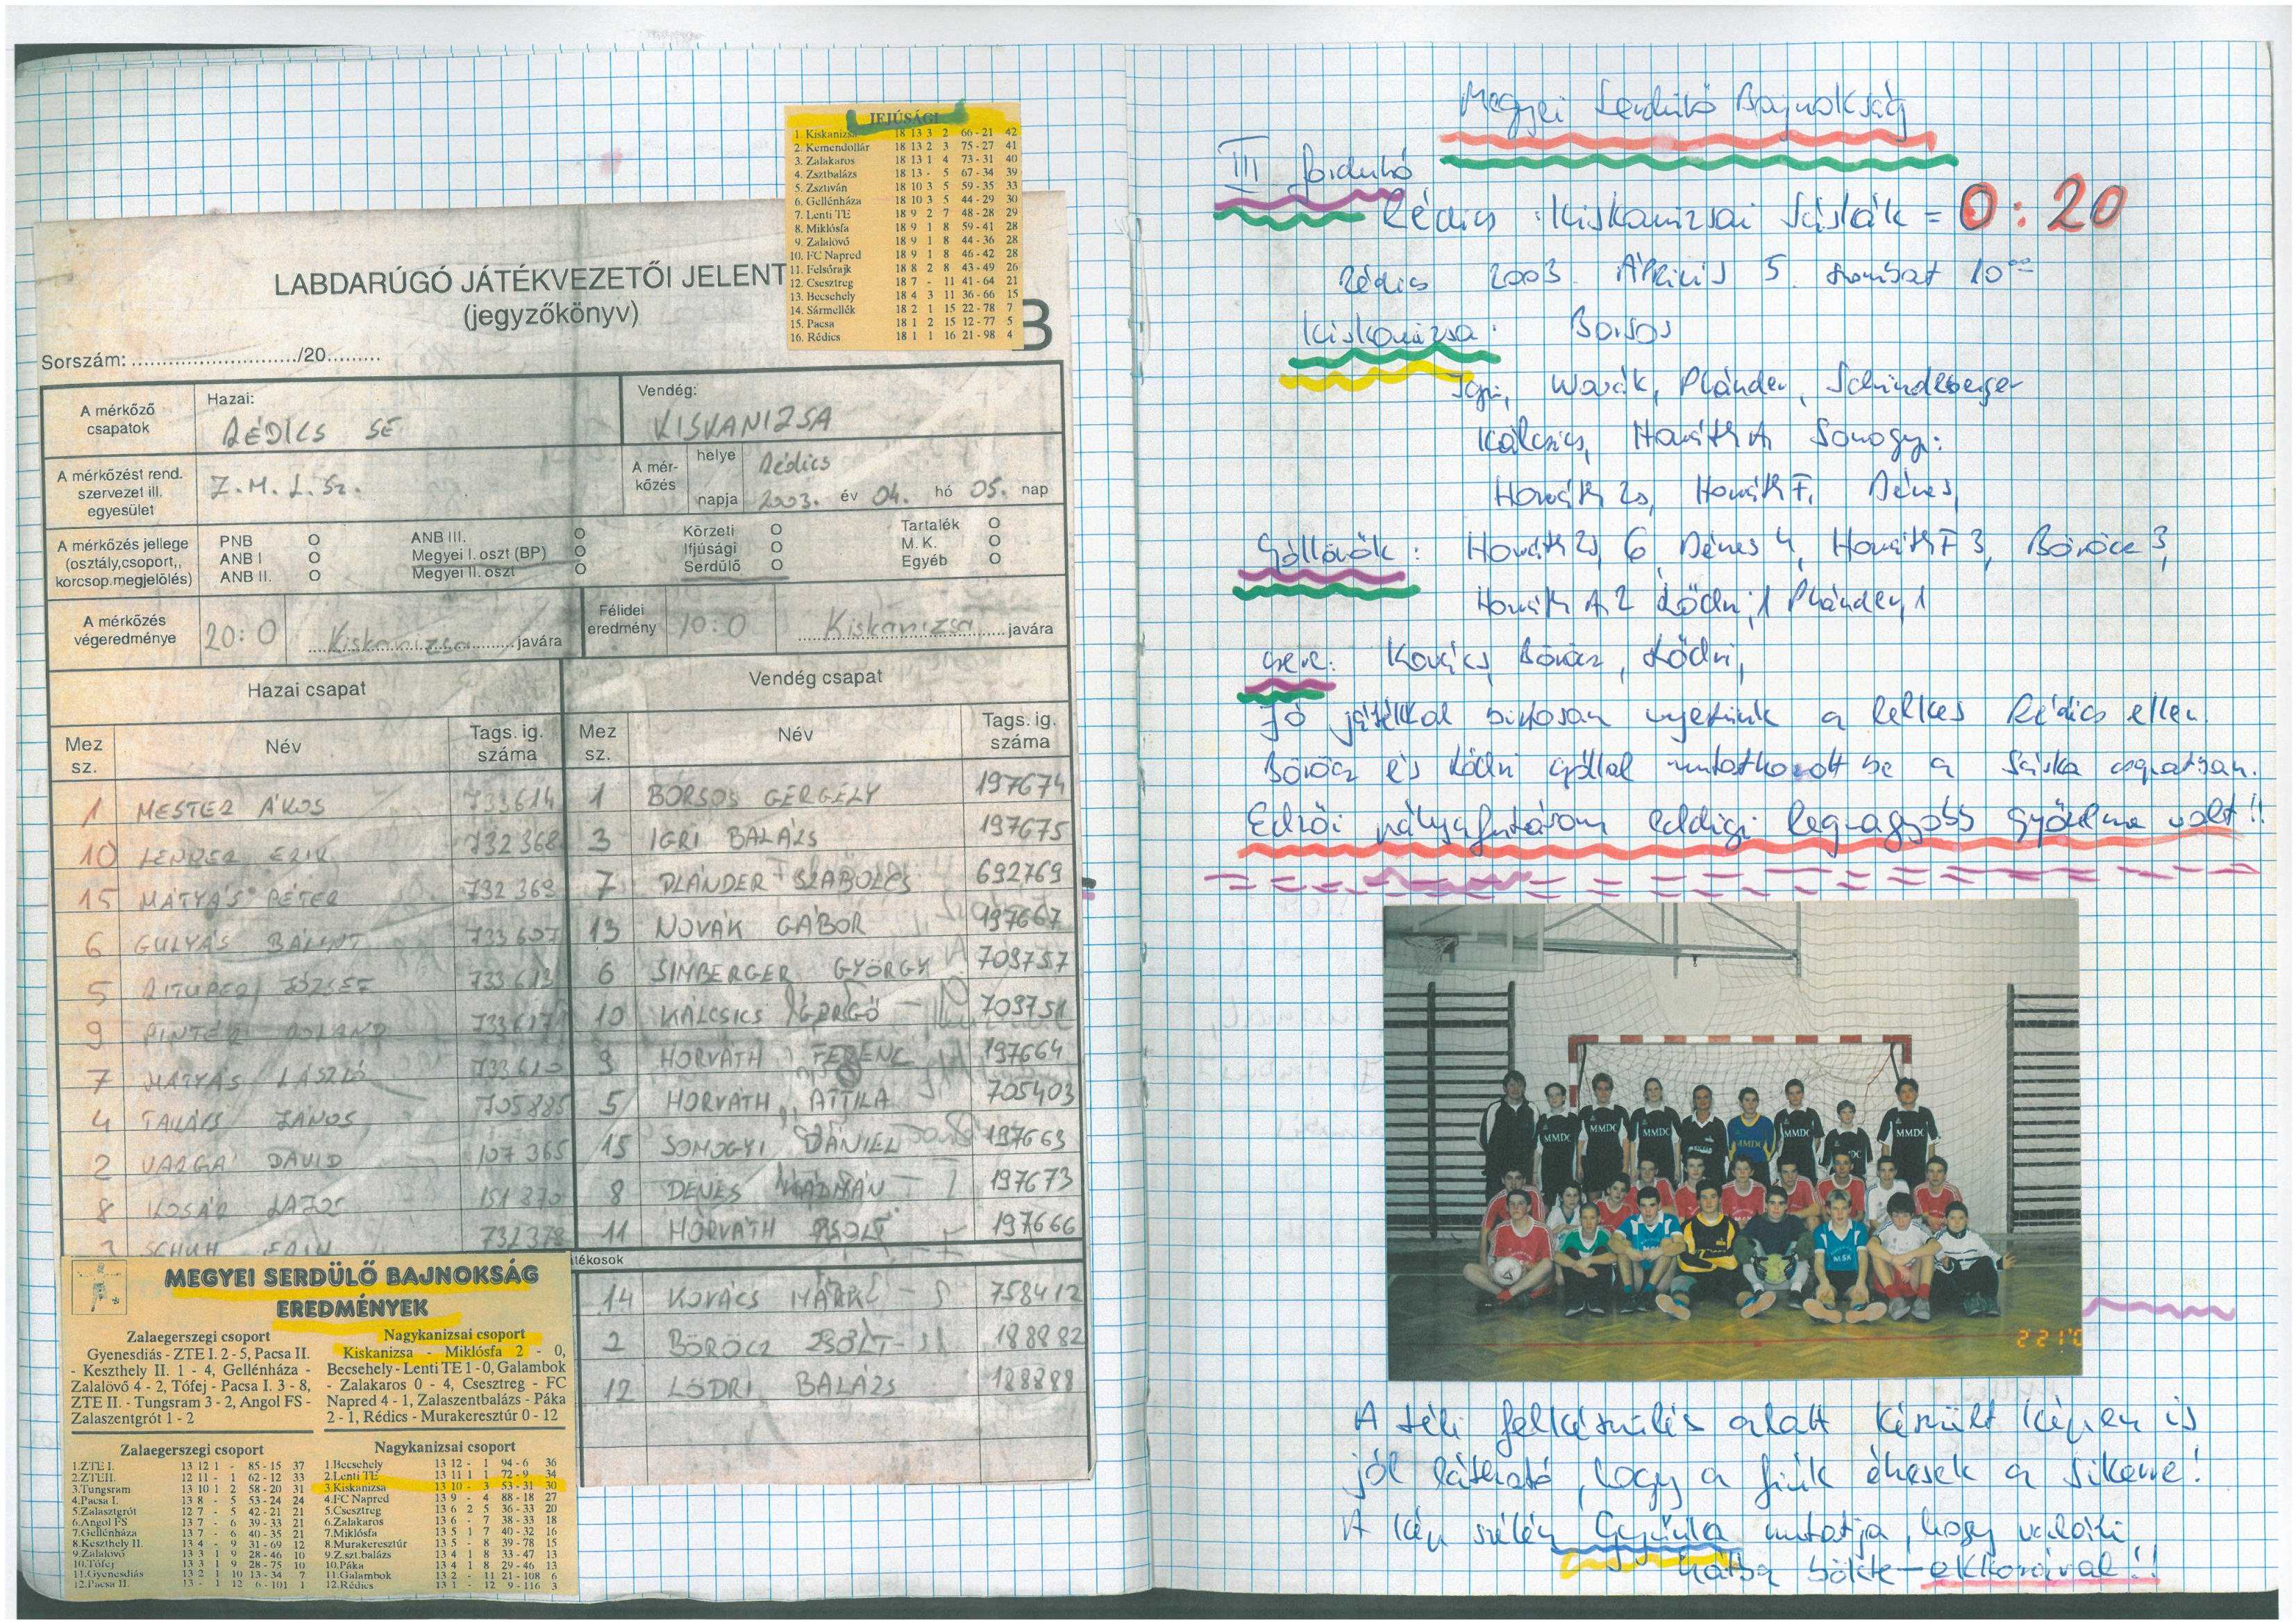 IFJÚSÁGI
1. Kiskanizsa 18 13 3 2 66 - 21 42
2. Kemendollár 18 13 2 3 75 - 27 41
3. Zalakaros 18 13 1 4 73 - 31 40
4. Zsztbalázs 18 13 - 5 67 - 34 39
5. Zsztiván 18 10 3 5 59 - 35 33
6. Gellénháza 18 10 3 5 44 - 29 30
7. Lenti TE 18 9 2 7 48 - 28 29
8. Miklósfa 18 9 1 8 59 - 41 28
9. Zalalövő 18 9 1 8 44 - 36 28
10. FC Napred 18 9 1 8 46 - 42 28
11. Felsőrajk 18 8 2 8 43 - 49 26
12. Csesztreg 18 7 - 11 41 - 64 21
13. Becsehely 18 4 3 11 36 - 66 15
14. Sármellék 18 2 1 15 22 - 78 7
15. Pacsa 18 1 2 15 12 - 77 5
16. Rédics 18 1 1 16 21 - 98 4
LABDARÚGÓ JÁTÉKVEZETŐI JELENT
(jegyzőkönyv)
B
Sorszám: ............/20.........
A mérkőző csapatok
Hazai: RÉDICS SE
Vendég: KISKANIZSA
A mérkőzést rend. szervezet ill. egyesület
Z.M.L.Sz.
A mérkőzés helye Rédics
napja 2003. év 04. hó 05. nap
A mérkőzés jellege (osztály,csoport,, korcsop.megjelölés)
PNB O ANB III. O Körzeti O Tartalék O
ANB I O Megyei I. oszt (BP) O Ifjúsági O M. K. O
ANB II. O Megyei II. oszt O Serdülő Egyéb O
A mérkőzés végeredménye 20:0 Kiskanizsa javára
Félidei eredmény 10:0 Kiskanizsa javára
Hazai csapat
Mez sz. Név Tags. ig. száma
1 MESTER ÁKOS 733614
10 732368
15 MÁTYÁS PÉTER 732369
6 GULYÁS BÁLINT 733607
5 JÓZSEF 733613
9 PINTÉR ROLAND 733617
7 MÁTYÁS LÁSZLÓ 733610
4 TAKÁCS JÁNOS 705885
2 VARGA DÁVID 107365
8 KOSÁR LAJOS 151370
SCHUH 732378
Vendég csapat
Mez sz. Név Tags. ig. száma
1 BORSOS GERGELY 197674
3 IGRI BALÁZS 197675
7 PLÁNDER SZABOLCS 692769
13 NOVÁK GÁBOR 197667
6 SIMBERGER GYÖRGY 709757
10 KÁLCSICS GERGŐ 709751
9 HORVÁTH FERENC 197664
5 HORVÁTH ATTILA 705403
15 SOMOGYI DÁNIEL 197669
8 DÉNES KÁLMÁN 197673
11 HORVÁTH ZSOLT 197666
tékosok
14 KOVÁCS MÁRK 758412
2 BÖRÖCZ ZSOLT 188882
12 LŐDRI BALÁZS 188288
MEGYEI SERDÜLŐ BAJNOKSÁG
EREDMÉNYEK
Zalaegerszegi csoport
Gyenesdiás - ZTE I. 2 - 5, Pacsa II.
- Keszthely II. 1 - 4, Gellénháza -
Zalalövő 4 - 2, Tófej - Pacsa I. 3 - 8,
ZTE II. - Tungsram 3 - 2, Angol FS -
Zalaszentgrót 1 - 2
Nagykanizsai csoport
Kiskanizsa - Miklósfa 2 - 0,
Becsehely - Lenti TE 1 - 0, Galambok
- Zalakaros 0 - 4, Csesztreg - FC
Napred 4 - 1, Zalaszentbalázs - Páka
2 - 1, Rédics - Murakeresztúr 0 - 12
Zalaegerszegi csoport
1.ZTE I. 13 12 1 - 85 - 15 37
2.ZTEII. 12 11 - 1 62 - 12 33
3.Tungsram 13 10 1 2 58 - 20 31
4.Pacsa I. 13 8 - 5 53 - 24 24
5.Zalasztgrót 12 7 - 5 42 - 21 21
6.Angol FS 13 7 - 6 39 - 33 21
7.Gellénháza 13 7 - 6 40 - 35 21
8.Keszthely II. 13 4 - 9 31 - 69 12
9.Zalalövő 13 3 1 9 28 - 46 10
10.Tófej 13 3 1 9 28 - 75 10
11.Gyenesdiás 13 2 1 10 13 - 34 7
12.Pacsa II. 13 - 1 12 6 - 101 1
Nagykanizsai csoport
1.Becsehely 13 12 - 1 94 - 6 36
2.Lenti TE 13 11 1 1 72 - 9 34
3.Kiskanizsa 13 10 - 3 53 - 31 30
4.FC Napred 13 9 - 4 88 - 18 27
5.Csesztreg 13 6 2 5 36 - 33 20
6.Zalakaros 13 6 - 7 38 - 33 18
7.Miklósfa 13 5 1 7 40 - 32 16
8.Murakeresztúr 13 5 - 8 39 - 78 15
9.Z.szt.balázs 13 4 1 8 33 - 47 13
10.Páka 13 4 1 8 29 - 46 13
11.Galambok 13 2 - 11 21 - 108 6
12.Rédics 13 1 - 12 9 - 116 3
Megyei Serdülő Bajnokság
III forduló
Rédics : Kiskanizsai Sáskák = 0:20
Rédics 2003. Április 5. szombat 10⁰⁰
Kiskanizsa: Borsos
Igri, Novák, Plánder, Schindberger
Kálcsics, Horváth A, Somogyi:
Horváth Zs, Horváth F, Dénes,
Góllövők: Horváth Zs 6, Dénes 4, Horváth F 3, Böröcz 3,
Horváth A. 2 Lődri, 1 Plánder, 1
csere: Kovács, Böröcz, Lődri,
Jó játékkal biztosan nyertünk a lelkes Rédics ellen.
Böröcz és Lődri góllal mutatkozott be a Sáska csapatban.
Edzői pályafutásom eddigi legnagyobb győzelme volt!!
MMDC
MMDC
MMDC
MMDC
MMDC
MMDC
MSK
A téli felkészülés alatt készült képen is
jól látható, hogy a fiúk éhesek a sikerre!
A kép szélén Gyuluka mutatja, hogy valaki
hátba bökte ekkorával!!